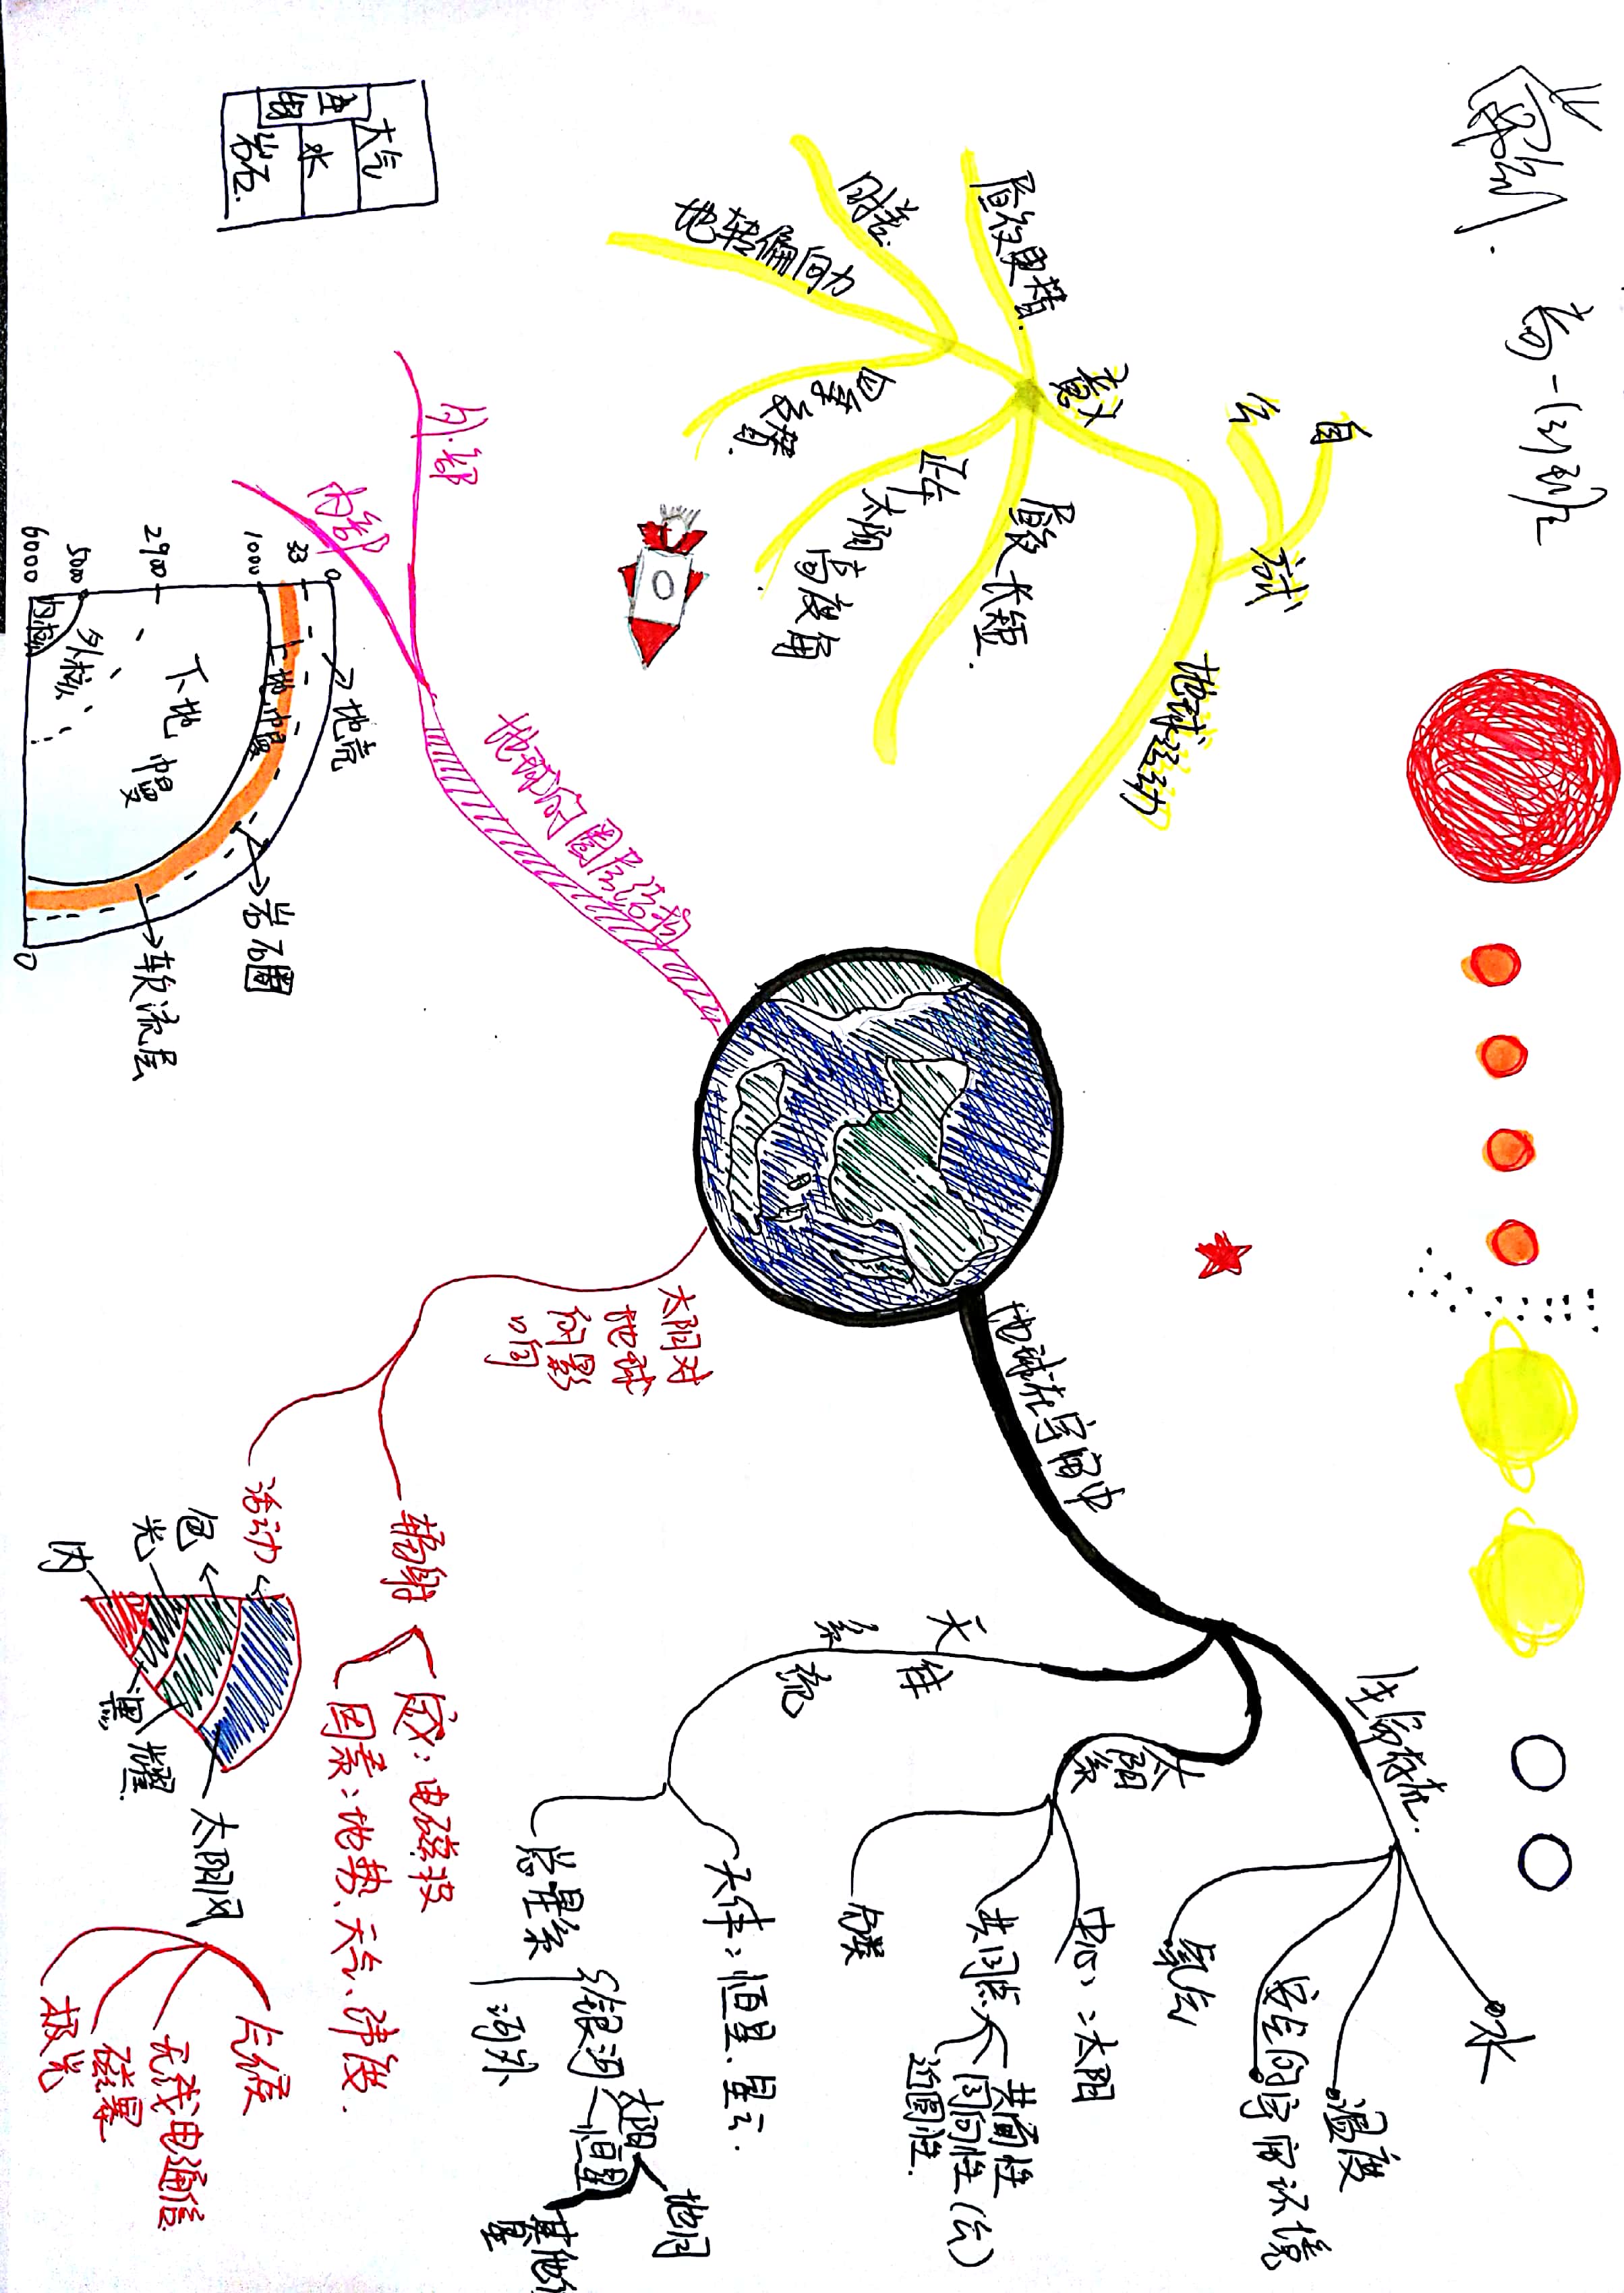 高一(3)班
地球运动
形式
自
公
意义
昼夜更替.
时差.
地转偏向力
四季
正午
太阳
高度角
昼夜长短.
地球的圈层结构
外部
内部
大气
水
生物
岩石.
0
33
1000
2900
5000
6000
0
地壳
上地幔
下地幔
外核
内核
岩石圈
软流层
地球在宇宙中
生命存在.
水
温度
安全的宇宙环境
氧气
太阳系
中心:太阳
共同点
共面性
同向性(公)
近圆性.
分类
天体系统
天体:恒星.星云.
总星系
银河
河外
太阳
恒星
地月
其他
太阳对
地球
的影
响
辐射
成:电磁波
因素:地势、天气、纬度.
活动
色
光
内
黑
耀
太阳风
气候
无线电通信
磁暴
极光